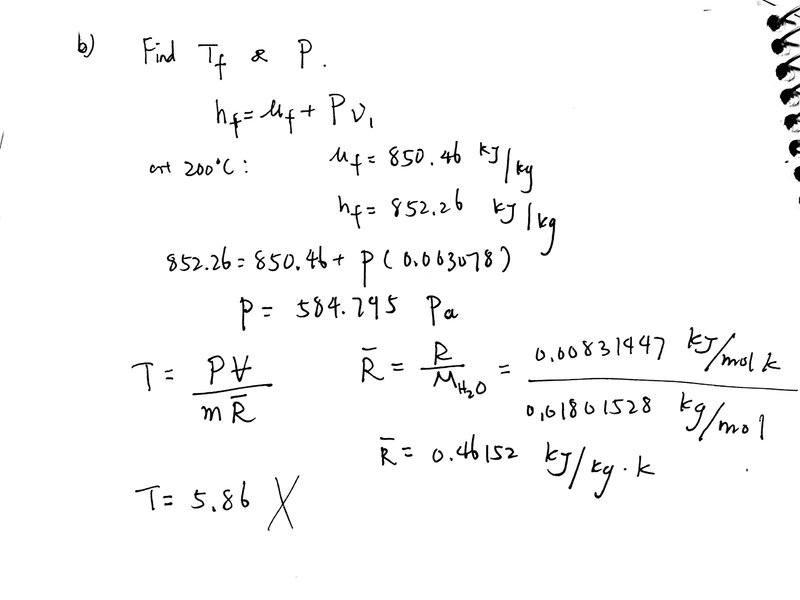 b) Find Tf & P.
hf = uf + Pν1
at 200°C: uf = 850.46 kJ/kg
hf = 852.26 kJ/kg
852.26 = 850.46 + P(0.003078)
P = 584.795 Pa
T = PV/mR̄ R̄ = R/MH2O = 0.00831447 kJ/mol k / 0.01801528 kg/mol
R̄ = 0.46152 kJ/kg·k
T = 5.86 X